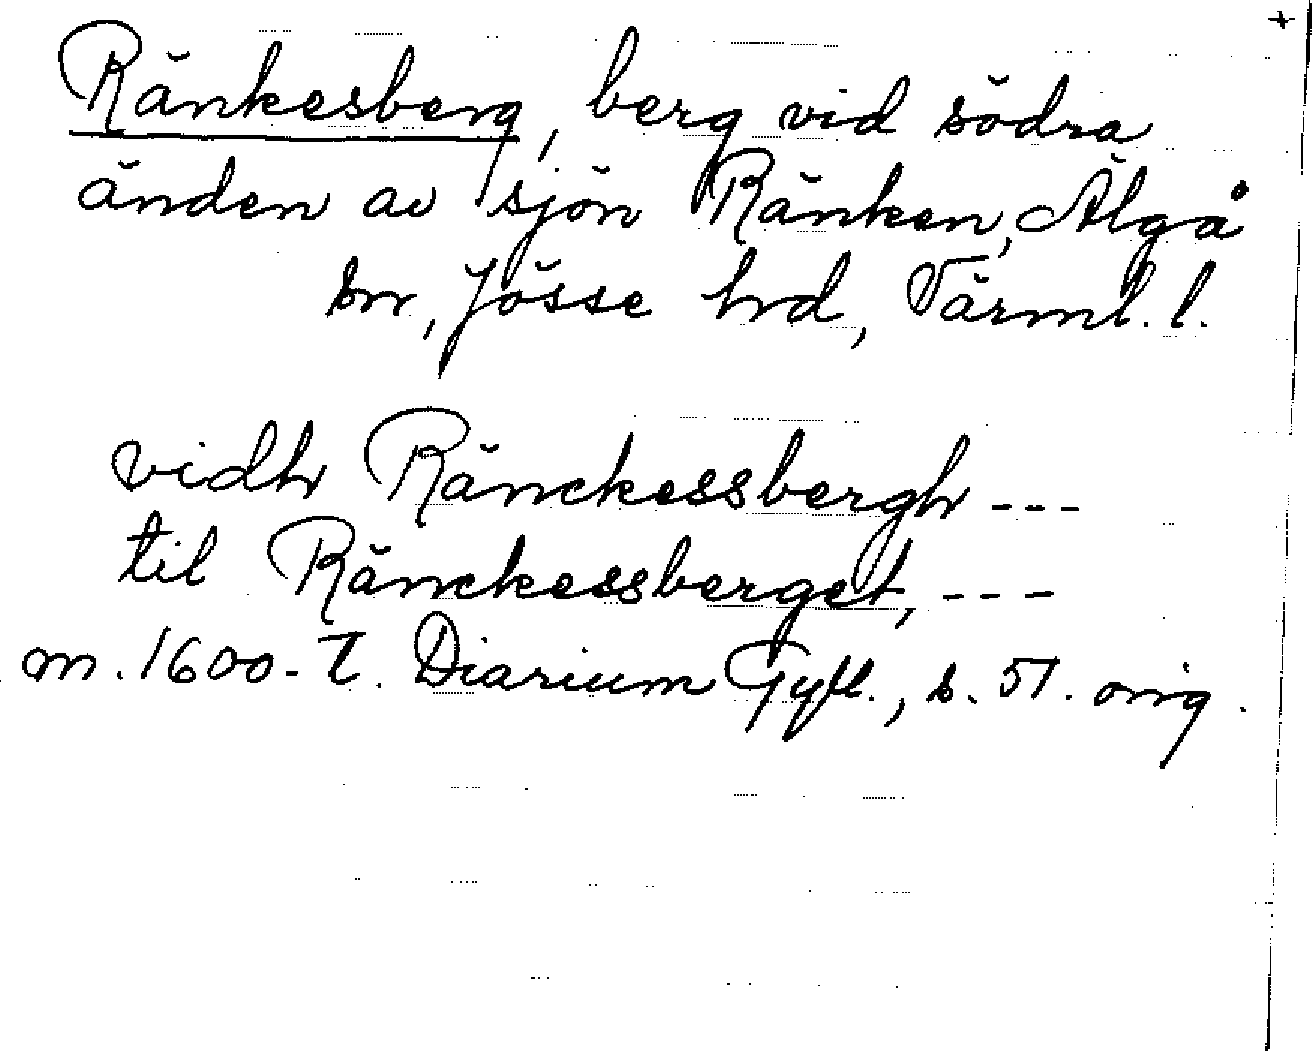 +
Ränkesberg, berg vid södra
änden av sjön Ränken, Älgå
sn, Jösse hrd, Värml. l.
vidh Ränckessbergh ---
til Ränckessberget, ---
m. 1600-t. Diarium Gyll., s. 51. orig.